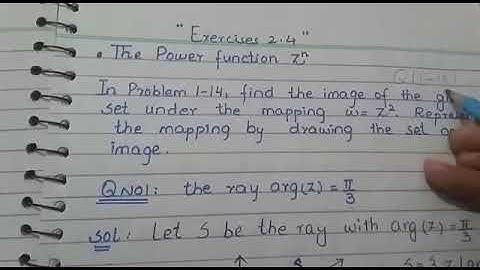 "Exercises 2.4"
• The Power function zⁿ
Q(1-14)
In Problem 1-14, find the image of the
set under the mapping w = z². Represent
the mapping by drawing the set
image.
Q NO1: the ray arg(z) = π/3
Sol: Let S be the ray with arg(z) = π/3
S